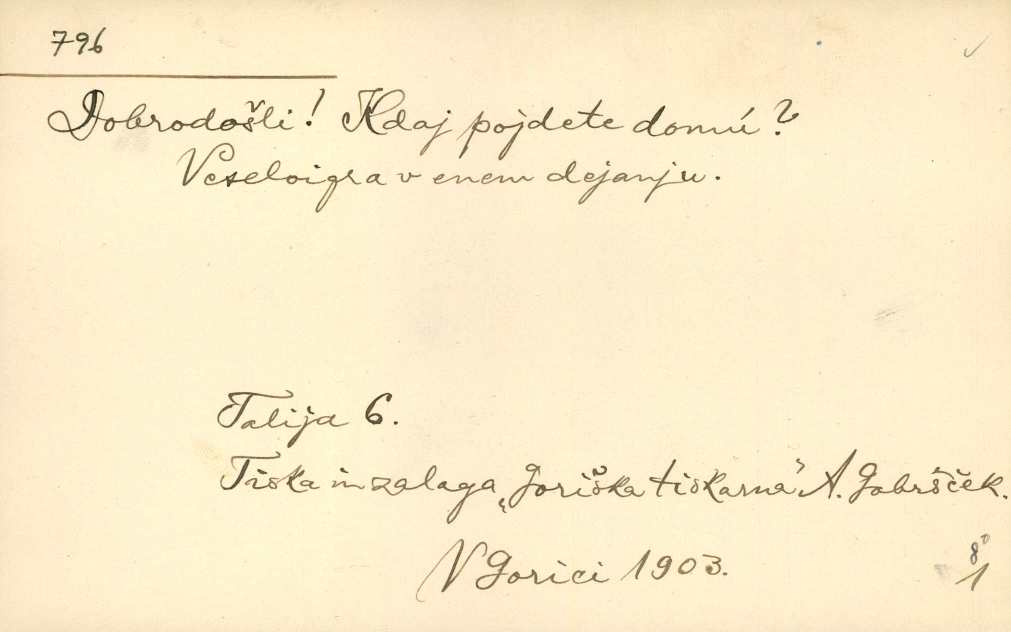 796
Dobrodošli! Kdaj pojdete domú?
Veseloigra v enem dejanju.
Talija 6.
Tiska in zalaga „Goriška tiskarna” A. Gabršček.
V Gorici 1903.
8°
1